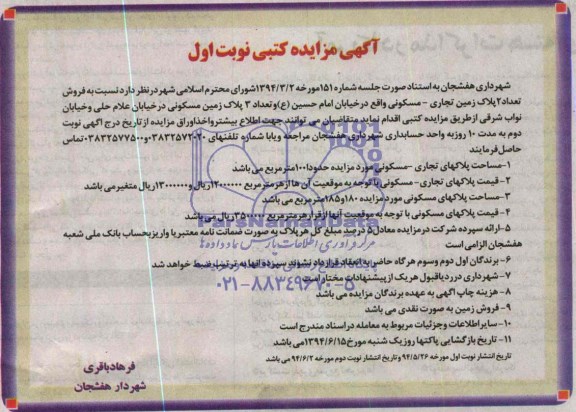 آگهی مزایده کتبی نوبت اول
شهرداری هفشجان به استناد صورت جلسه شماره ۱۵۱ مورخه ۱۳۹۴/۳/۲ شورای محترم اسلامی شهر در نظر دارد نسبت به فروش
تعداد ۲ پلاک زمین تجاری - مسکونی واقع در خیابان امام حسین (ع) و تعداد ۳ پلاک زمین مسکونی در خیابان علام حلی و خیابان
نواب شرقی از طریق مزایده کتبی اقدام نماید متقاضیان می توانند جهت اطلاع بیشتر و اخذ اوراق مزایده از تاریخ درج آگهی نوبت
دوم به مدت ۱۰ روز به واحد حسابداری شهرداری هفشجان مراجعه و یا با شماره تلفنهای ۰۳۸۳۲۵۷۲۰۲۰ و ۰۳۸۳۲۵۷۷۵۰۰ تماس
حاصل فرمایند
۱-مساحت پلاکهای تجاری -مسکونی مورد مزایده حدودا ۱۰۰ متر مربع می باشد
۲- قیمت پلاکهای تجاری- مسکونی با توجه به موقعیت آن ها از هر متر مربع ریال و ریال متغیر می باشد
۳-مساحت پلاکهای مسکونی مورد مزایده ۱۸۰ و ۱۸۵ متر مربع می باشد
۴- قیمت پلاکهای مسکونی با توجه به موقعیت آنها از قرار هر متر مربع ریال می باشد
۵-ارائه سپرده شرکت در مزایده معادل ۵ درصد مبلغ کل هر پلاک به صورت ضمانت نامه معتبر یا واریز بحساب بانک ملی شعبه
هفشجان الزامی است
۶- برندگان اول دوم و سوم هر گاه حاضر به انعقاد قرارداد نشوند سپرده آنها به ترتیب ضبط خواهد شد
۷- شهرداری در رد یا قبول هر یک از پیشنهادات مختار است
۸- هزینه چاپ آگهی به عهده برندگان مزایده می باشد
۹- فروش زمین به صورت نقدی می باشد
۱۰-سایر اطلاعات و جزئیات مربوط به معامله در اسناد مندرج است
۱۱- تاریخ بازگشایی پاکتها روز یک شنبه مورخ ۱۳۹۴/۶/۱۵ می باشد
تاریخ انتشار نوبت اول مورخه ۹۴/۵/۲۶ و تاریخ انتشار نوبت دوم مورخه ۹۴/۶/۲ می باشد
فرهاد باقری
شهردار هفشجان
ParsNamadData
مرکز فرآوری اطلاعات پارس نماد داده ها
۰۲۱-۸۸۳۴۹۶۷۰-۵